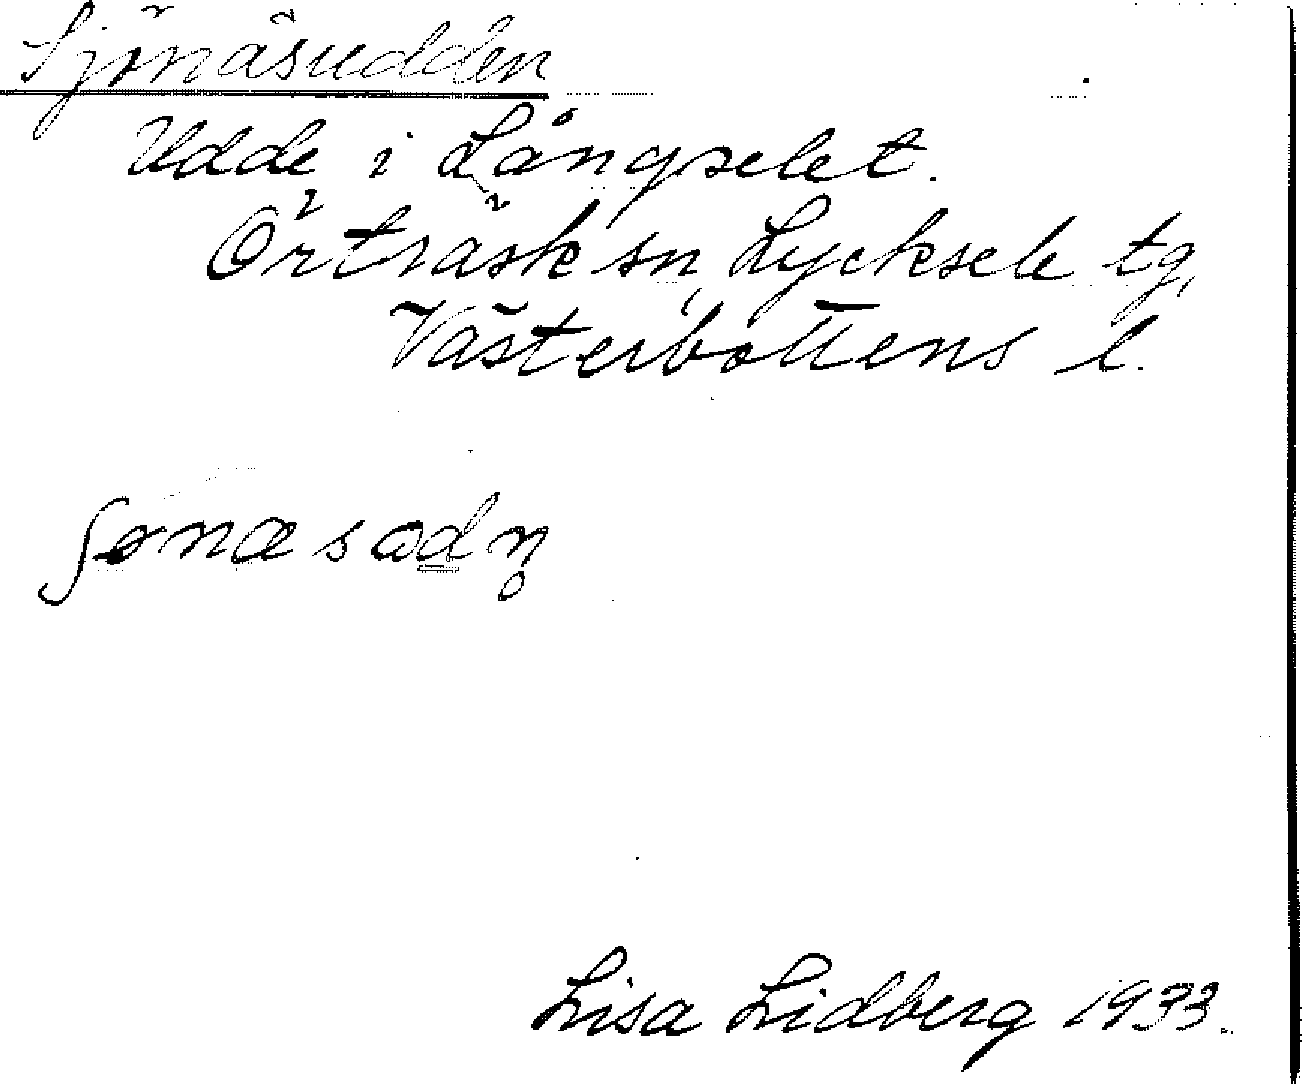 Sjönäsudden
Udde i Långselet.
Örträsk sn, Lycksele tg,
Västerbottens l.
ʃɵnæsɷdn̥
Lisa Lidberg 1933.